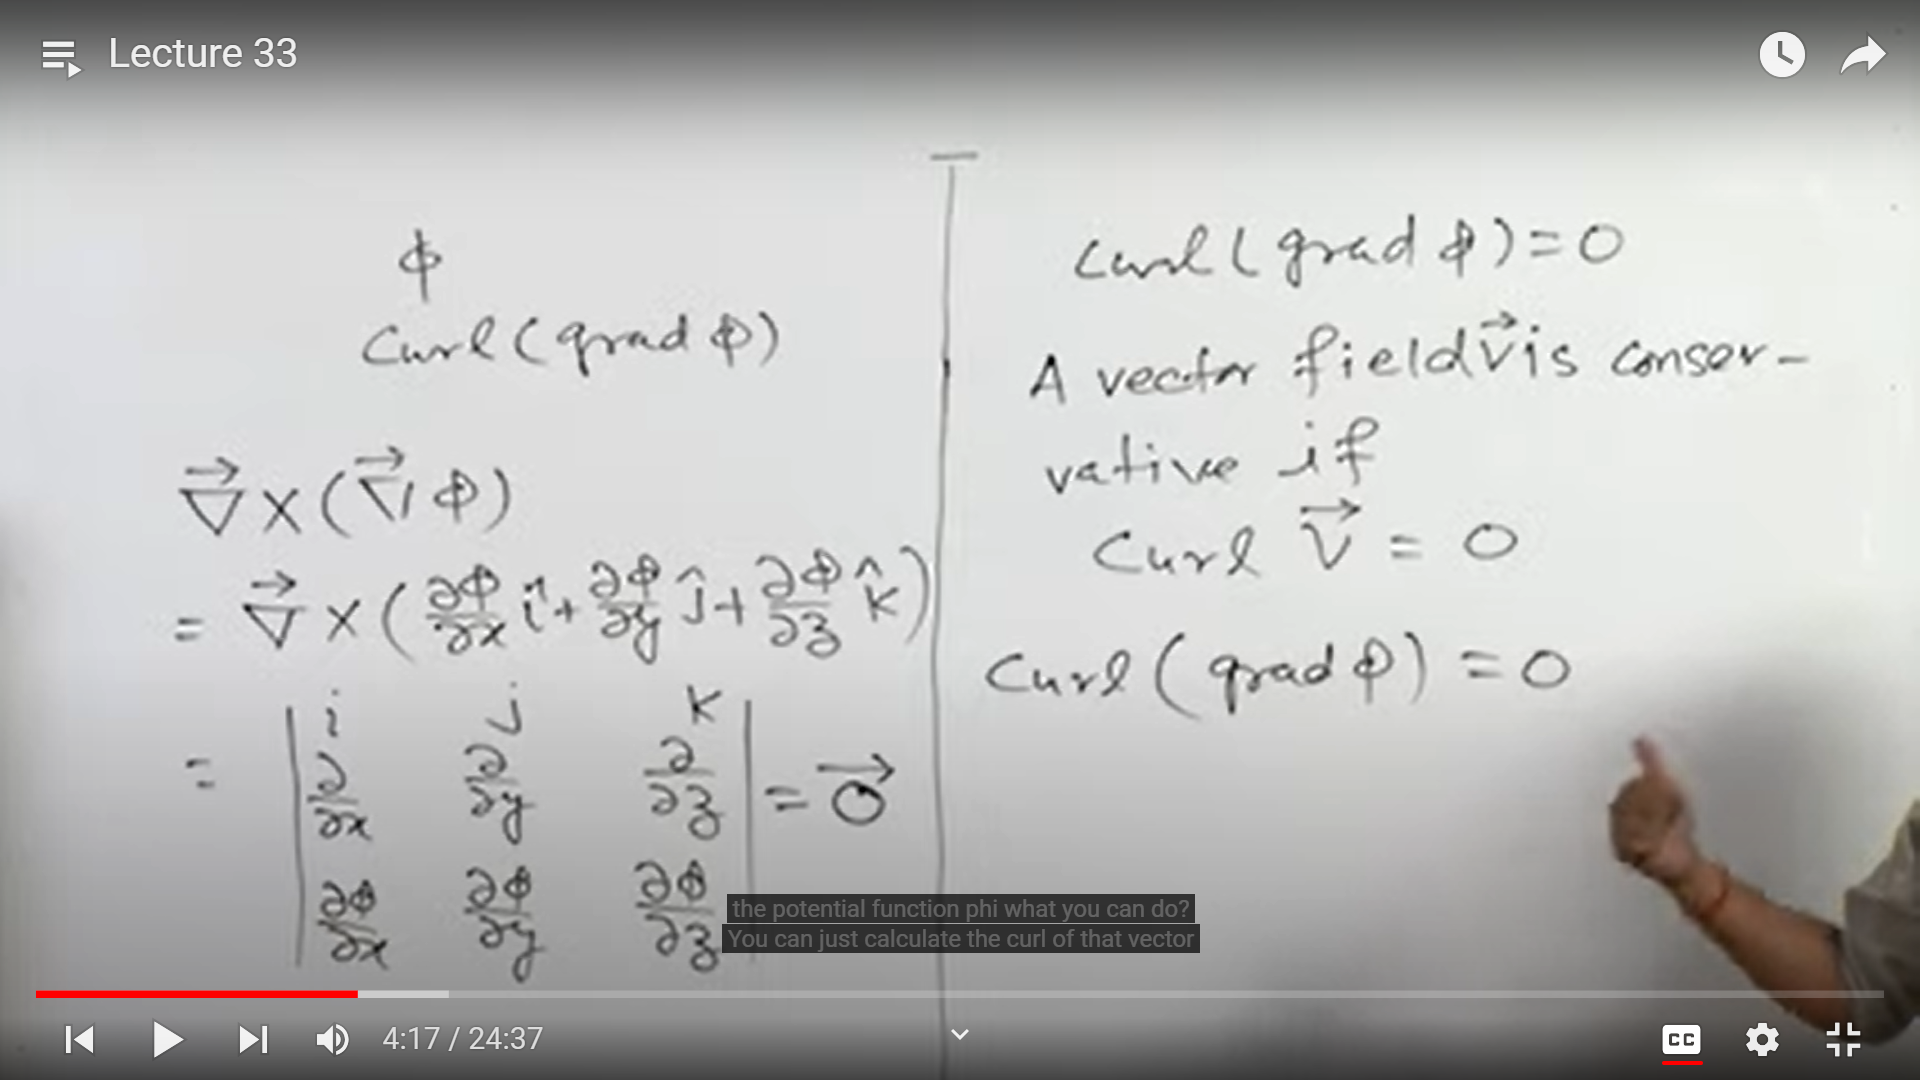 Lecture 33
ϕ
Curl (grad ϕ)
∇⃗ × (∇⃗ ϕ)
= ∇⃗ × (∂ϕ/∂x î + ∂ϕ/∂y ĵ + ∂ϕ/∂z k̂)
= | i j k |
| ∂/∂x ∂/∂y ∂/∂z | = 0⃗
| ∂ϕ/∂x ∂ϕ/∂y ∂ϕ/∂z |
Curl (grad ϕ) = 0
A vector field v⃗ is conser-
vative if
Curl V⃗ = 0
Curl (grad ϕ) = 0
the potential function phi what you can do?
You can just calculate the curl of that vector
4:17 / 24:37
CC